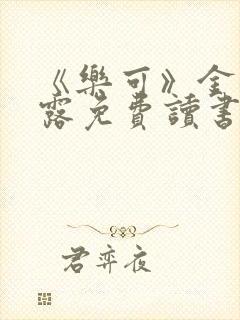 《樂可》金
露免費讀書
君弈夜